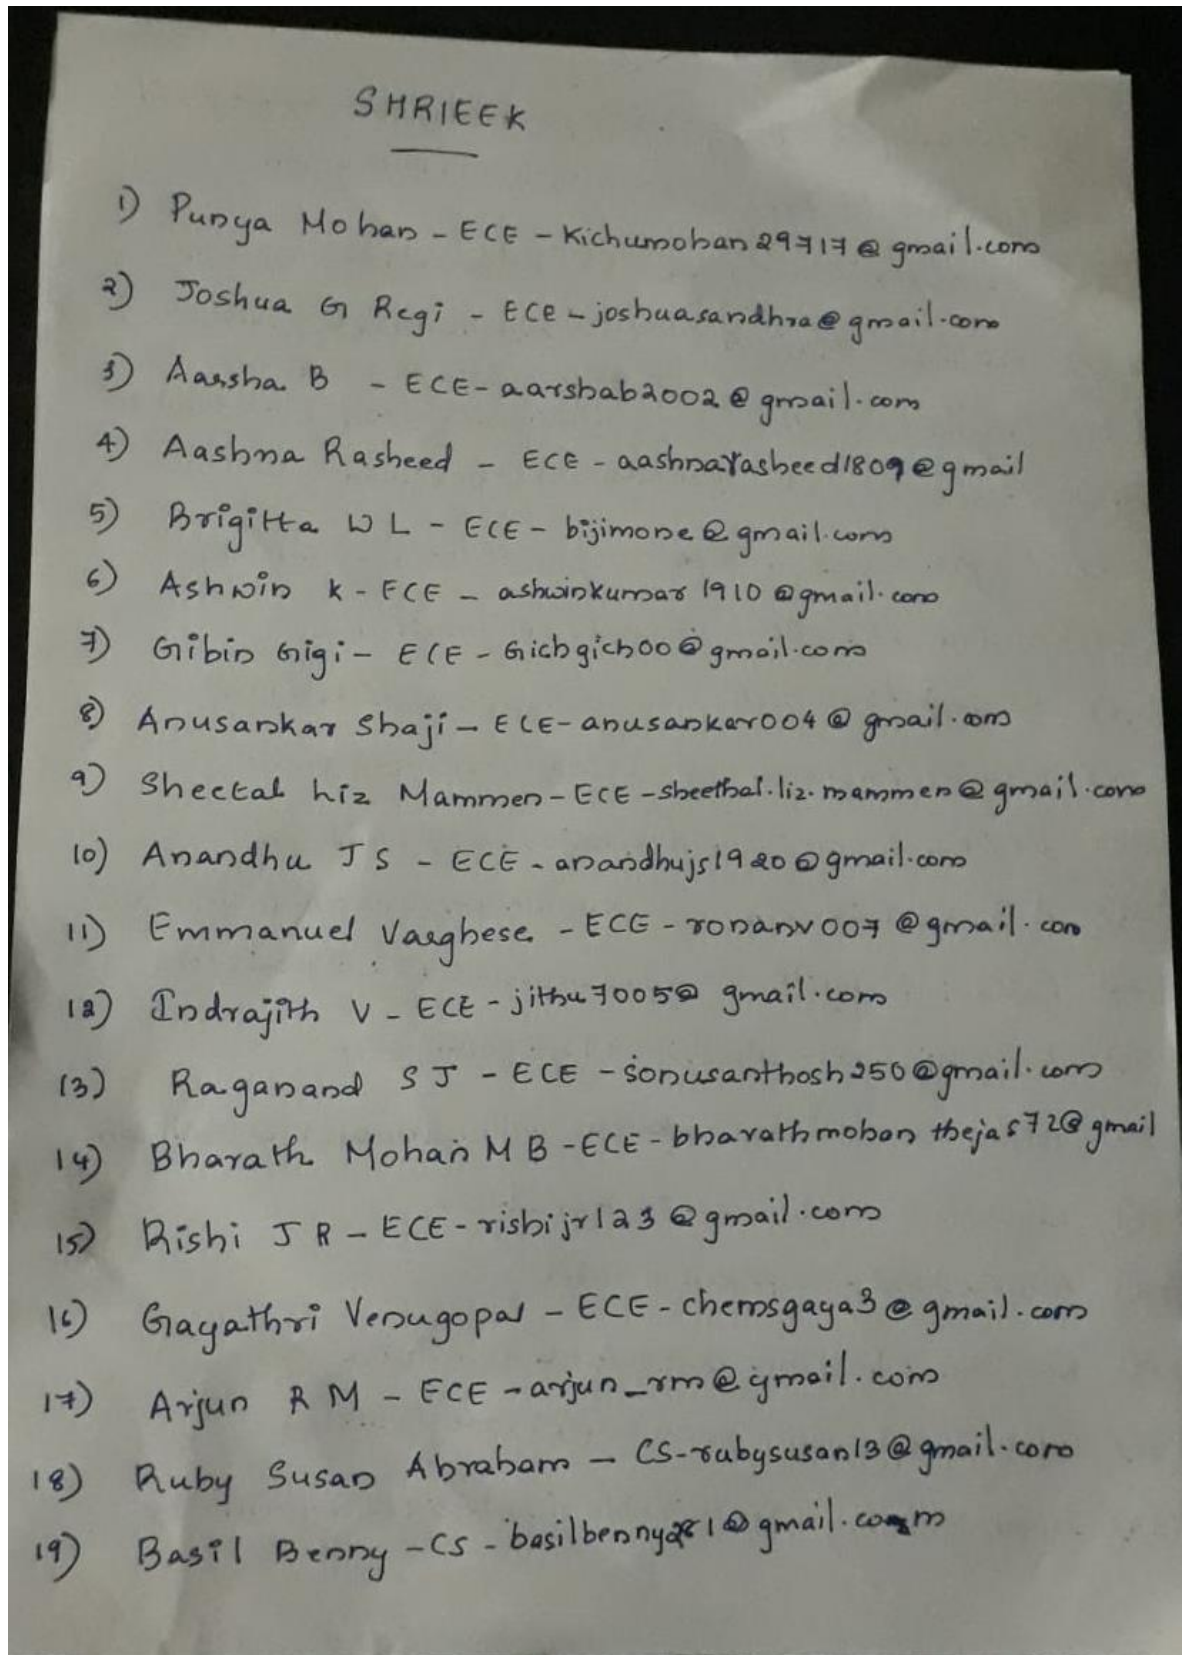 SHRIEEK
1) Punya Mohan - ECE - Kichumohan29717@gmail.com
2) Joshua G Regi - ECE - joshuasandhra@gmail.com
3) Aarsha B - ECE - aarshab2002@gmail.com
4) Aashna Rasheed - ECE - aashnarasheed1809@gmail
5) Brigitta W L - ECE - bijimone@gmail.com
6) Ashwin K - ECE - ashwinkumar1910@gmail.com
7) Gibin Gigi - ECE - Gichgich00@gmail.com
8) Anusankar Shaji - ECE - anusankar004@gmail.com
9) Sheetal Liz Mammen - ECE - sheethal.liz.mammen@gmail.com
10) Anandhu J S - ECE - anandhujs1920@gmail.com
11) Emmanuel Varghese - ECE - ronanv007@gmail.com
12) Indrajith V - ECE - jithu7005@gmail.com
13) Raganand S J - ECE - sonusanthosh250@gmail.com
14) Bharath Mohan M B - ECE - bharathmohanthejas72@gmail
15) Rishi J R - ECE - rishijr123@gmail.com
16) Gayathri Venugopal - ECE - chemsgaya3@gmail.com
17) Arjun R M - ECE - arjun_rm@gmail.com
18) Ruby Susan Abraham - CS - rubysusan13@gmail.com
19) Basil Benny - CS -